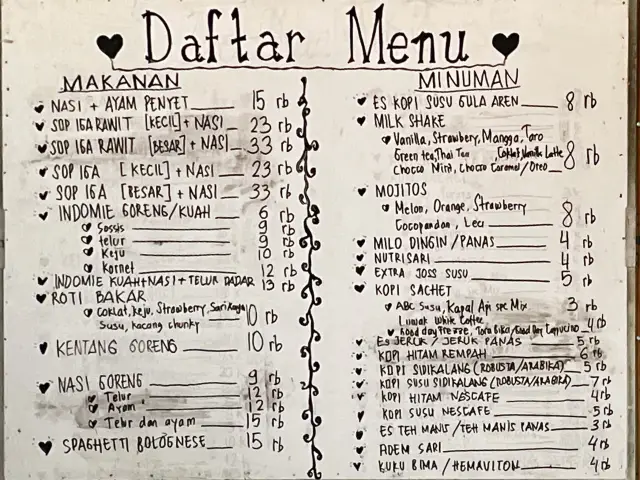 Daftar Menu
MAKANAN
NASI + AYAM PENYET 15 rb
SOP IGA RAWIT [KECIL] + NASI 23 rb
SOP IGA RAWIT [BESAR] + NASI 33 rb
SOP IGA [KECIL] + NASI 23 rb
SOP IGA [BESAR] + NASI 33 rb
INDOMIE GORENG/KUAH 6 rb
Sossis 9 rb
telur 9 rb
Keju 10 rb
Kornet 12 rb
INDOMIE KUAH+NASI+TELUR DADAR 13 rb
ROTI BAKAR
Coklat, keju, Strawberry, Sari Kaya 10 rb
Susu, kacang chunky
KENTANG GORENG 10 rb
NASI GORENG 9 rb
Telur 12 rb
Ayam 12 rb
Telur dan ayam 15 rb
SPAGHETTI BOLOGNESE 15 rb
MINUMAN
ES KOPI SUSU GULA AREN 8 rb
MILK SHAKE
Vanilla, Strawbery, Mangga, Taro
Green tea, Thai Tea Coklat, Vanilla Latte 8 rb
Choco Mint, Choco Caramel/Oreo
MOJITOS
Melon, Orange, Strawberry 8 rb
Cocopandan, Leci
MILO DINGIN/PANAS 4 rb
NUTRISARI 4 rb
EXTRA JOSS SUSU 5 rb
KOPI SACHET
ABC Susu, Kapal Api Spc Mix 3 rb
Luwak White Coffee
Good day Freeze, Tora Bika/Good Day Cappucino 4 rb
ES JERUK / JERUK PANAS 5 rb
KOPI HITAM REMPAH 6 rb
KOPI SIDIKALANG (ROBUSTA/ARABIKA) 5 rb
KOPI SUSU SIDIKALANG (ROBUSTA/ARABIKA) 7 rb
KOPI HITAM NESCAFE 4 rb
KOPI SUSU NESCAFE 5 rb
ES TEH MANIS / TEH MANIS PANAS 3 rb
ADEM SARI 4 rb
KUKU BIMA / HEMAVITON 4 rb